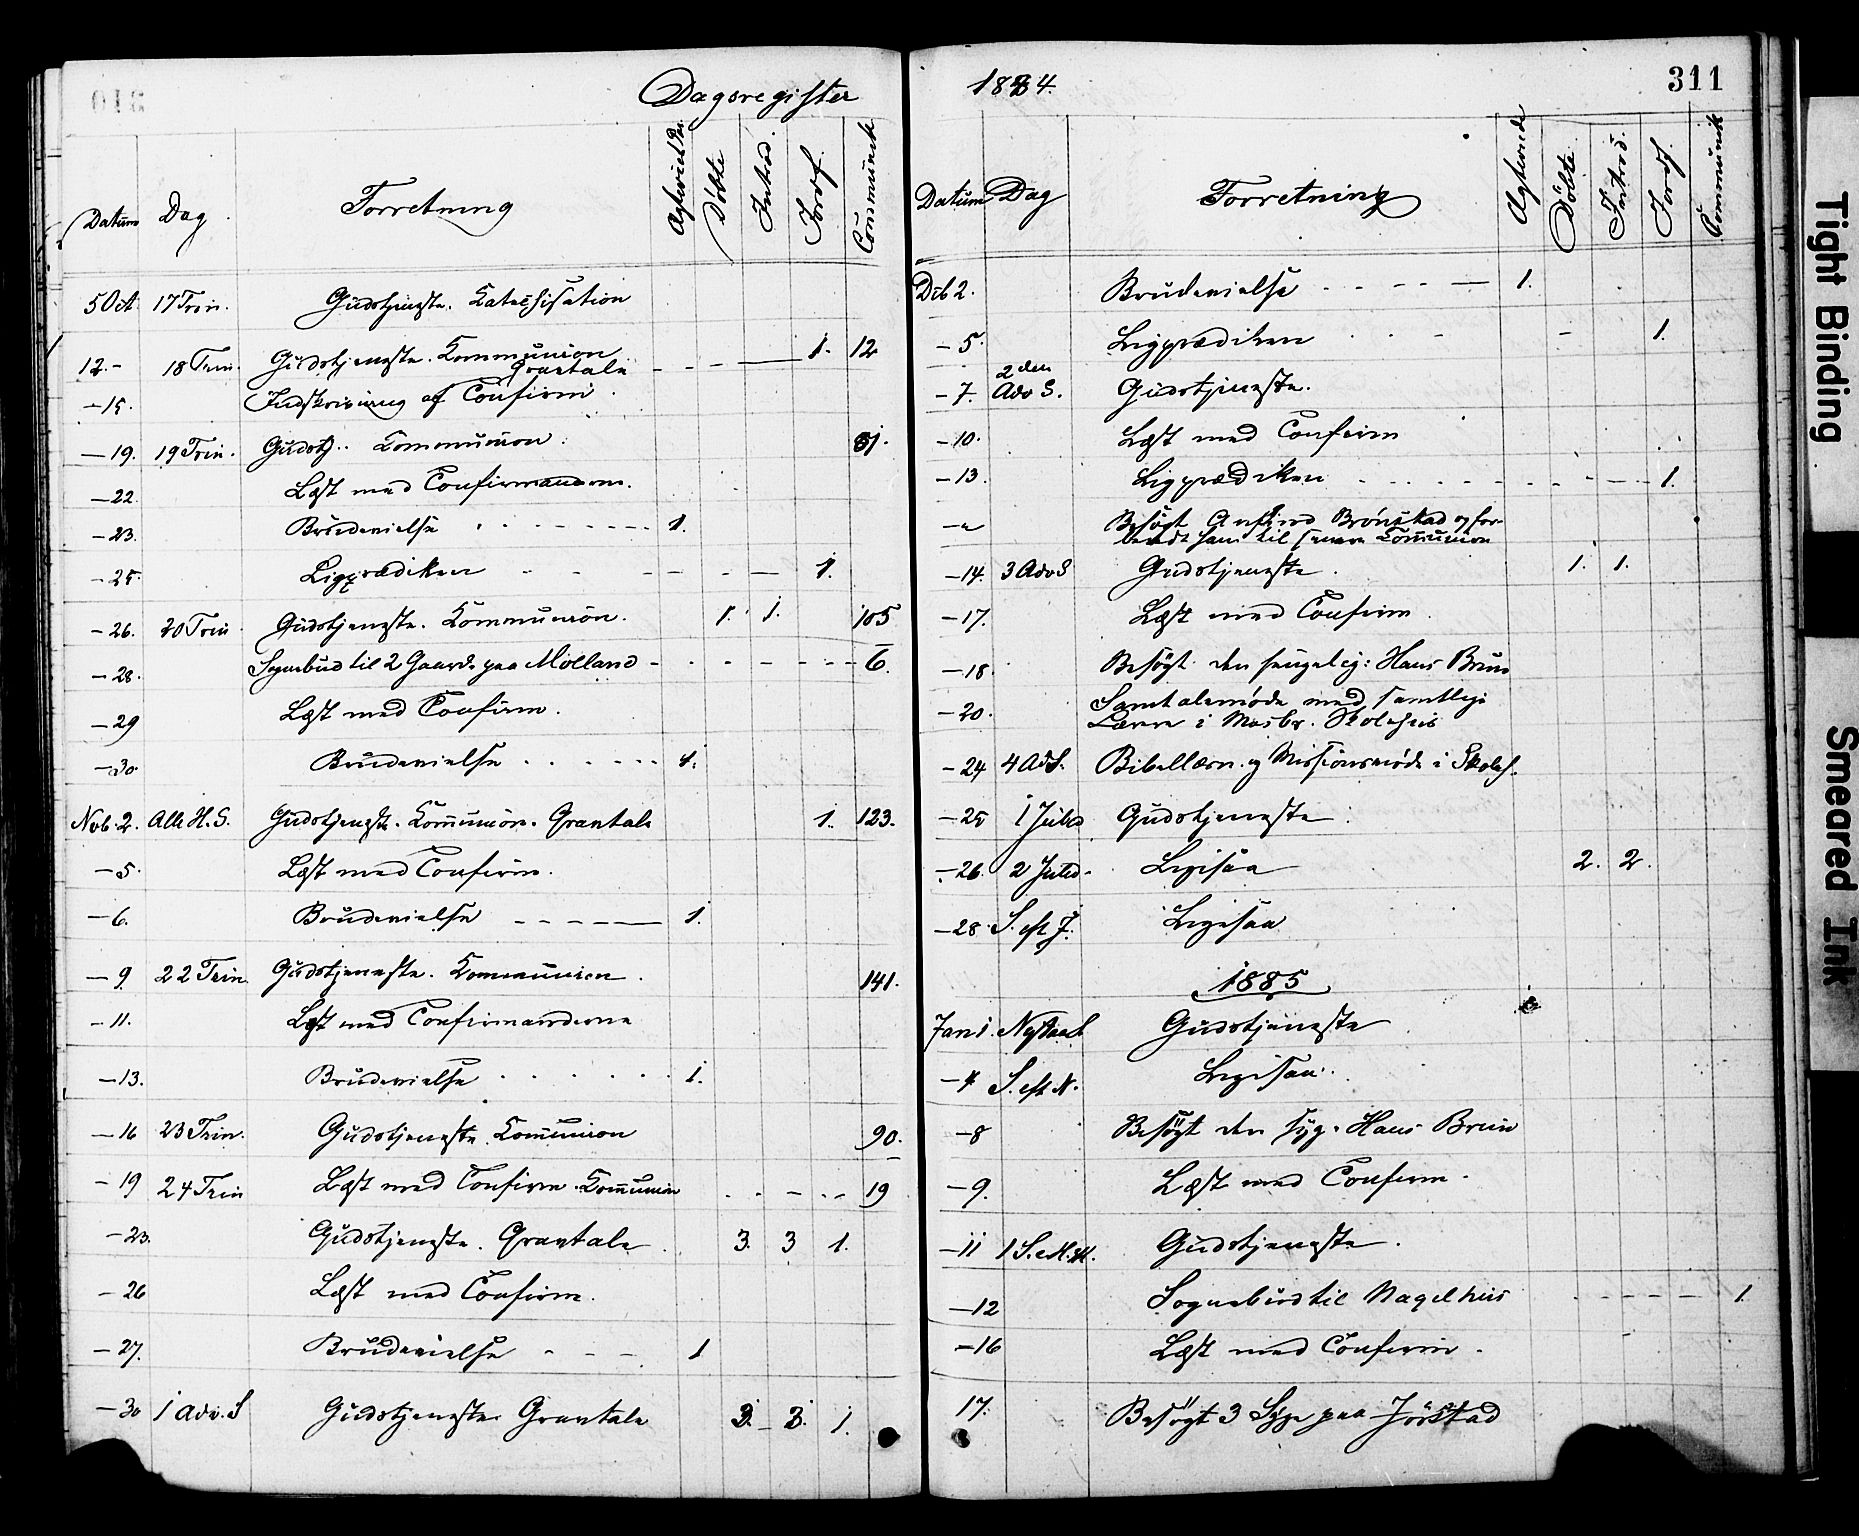 Dagsregister
Datum Dag Forretning Døbte Introd. Jordf. Communik
5 Oct 17 Trin. Gudstjeneste. Katechisation
12.- 18 Trin. Gudstjeneste. Kommunion 1. 12
Gravtale
-15. Indskrivning af Confirm
-19. 19 Trin. Gudstj. Kommunion.
-22. Læst med Confirmanderne.
-23. Brudevielse 1.
-25. Ligprædiken 1.
-26. 20 Trin Gudstjeneste. Kommunion. 1. 1. 105
-28. Sognebud til 2 Gaarde paa Molland 6.
-29 Læst med Confirm.
-30. Brudevielse 1.
Nvb. 2. Alle H. S. Gudstjeneste. Kommunion. Gravtale 1. 123.
-5. Læst med Confirm.
-6. Brudevielse 1.
-9 22 Trin. Gudstjeneste. Kommunion. 141.
-11. Læst med Confirmanderne
-13. Brudevielse 1.
-16 23 Trin. Gudstjeneste. Kommunion 90.
-19 24 Trin Læst med Confirm. Kommunion 19
-23. Gudstjeneste. Gravtale. 3. 3 1.
-26 Læst med Confirm.
-27. Brudevielse 1
-30 1 Adv. S Gudstjeneste. Gravtale 3. 3. 1.
1884.
311
Datum Dag Forretning Agtevide Døbte Introd. Jordf. Communik
Dcb 2. Brudevielse 1.
-5. Ligprædiken 1.
2den
-7. Adv S. Gudstjeneste.
-10. Læst med Confirm
-13. Ligprædiken 1.
Besøgt Brønstad og for-
beredt ham til senere Kommunion
-14. 3 Adv S Gudstjeneste. 1. 1.
-17. Læst med Confirm.
-18. Besøgt den sengelig: Hans Brun
-20. Samtalemøde med samtlige
Lærere i Mosby Skolehuis
-24 4 AdS. Bibellæsn. og Missionsmøde i Skoleh.
-25 1 Juled Gudstjeneste.
-26. 2 Juled. Ligesaa 2. 2.
-28 S. eft J. Ligesaa
1885
Jan 1. Nytaarsd Gudstjeneste
-4 S. eft N. Ligesaa.
-8 Besøgt den syg. Hans Brun
-9. Læst med Confirm.
-11 1 S. e H. 3 K. Gudstjeneste.
-12 Sognebud til Nagelhuis 1.
-16 Læst med Confirm.
17. Besøgt 3 Syge paa Jørstad
Tight Binding
Smeared Ink